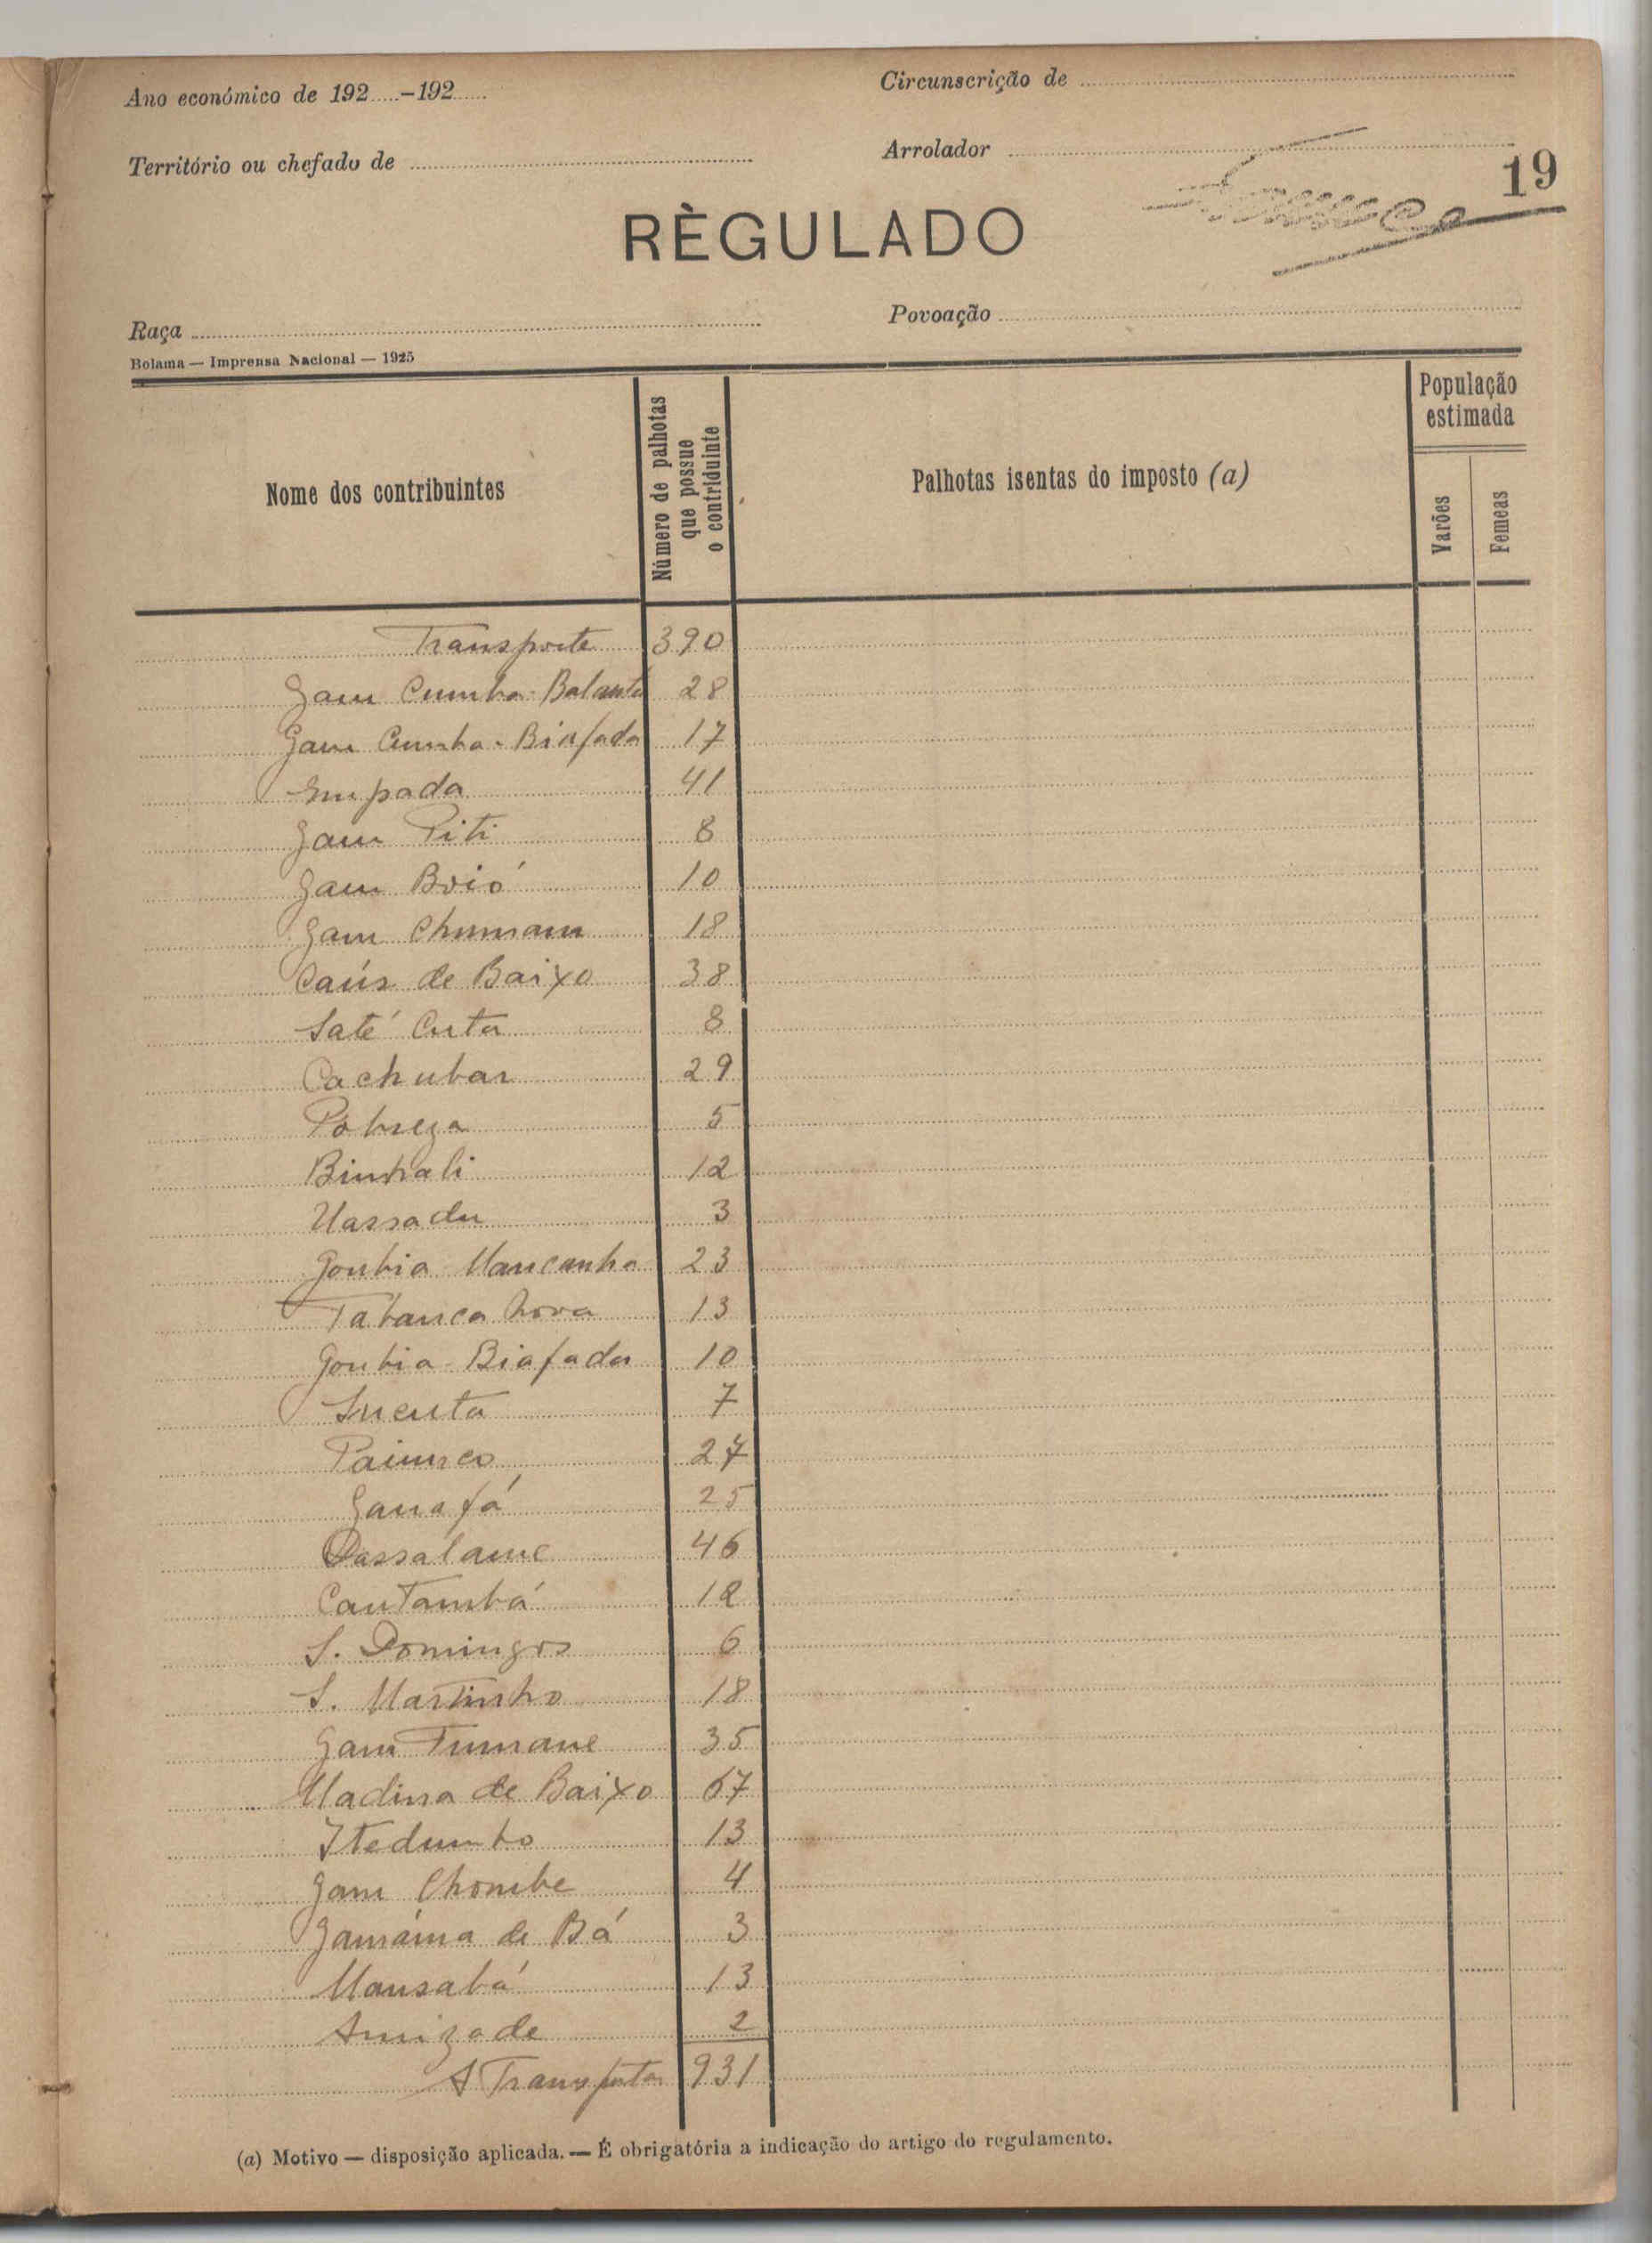 Ano económico de 192.....-192.....
Circunscrição de
Território ou chefado de
Arrolador
19
RÈGULADO
Raça
Povoação
Bolama — Imprensa Nacional — 1925
Nome dos contribuintes
Número de palhotas que possue o contriduinte
Palhotas isentas do imposto (a)
População estimada
Varões
Femeas
Transporte 390
Gam Cumba-Balanta 28
Gam Cumba-Biafada 17
Empada 41
Gam Piti 8
Gam Boió 10
Gam Chumam 18
Caúr de Baixo 38
Saté Cuta 8
Cachubar 29
Pobreza 5
Bimbali 12
Uassadu 3
Goubia Mancanha 23
Tabanca Nova 13
Goubia-Biafada 10
Incuta 7
Paiunco 27
Ganafá 25
Dassalame 46
Cantambá 12
S. Domingos 6
S. Martinho 18
Gam Tumane 35
Madina de Baixo 67
Itedumbo 13
Gam Chombe 4
Gamáma de Bá 3
Mansabá 13
Amizade 2
A Transportar 931
(a) Motivo — disposição aplicada. — É obrigatória a indicação do artigo do regulamento.